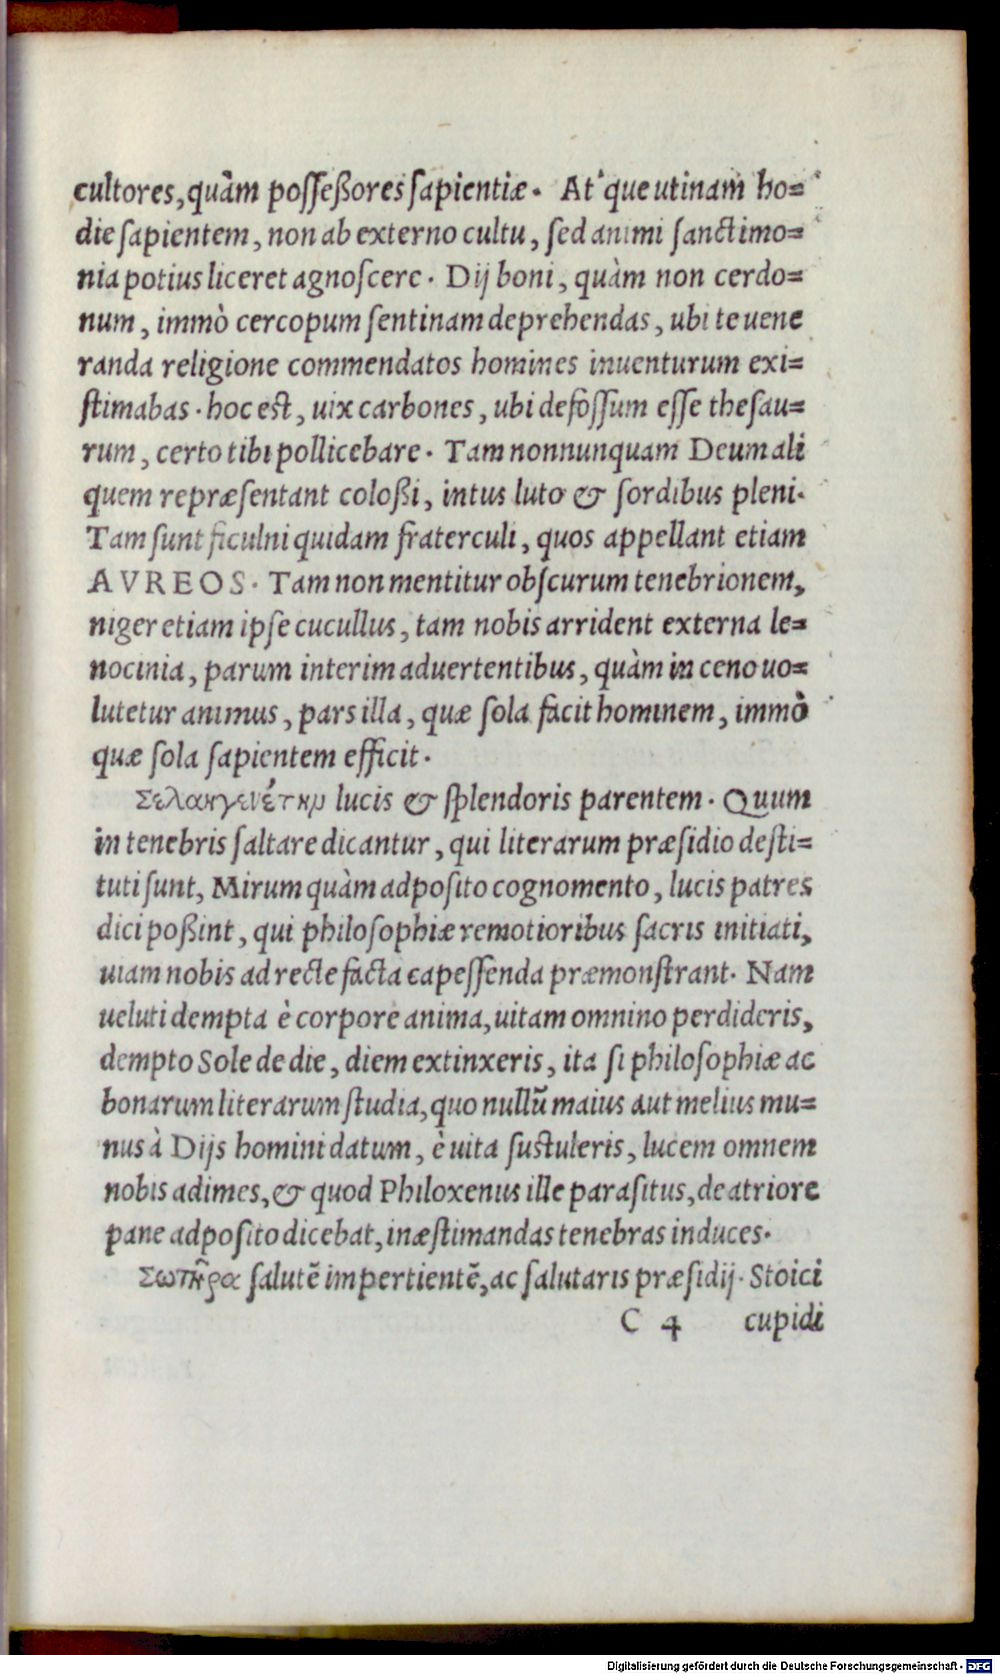 cultores, quàm posseßores sapientiæ. At'que utinam ho=
die sapientem, non ab externo cultu, sed animi sanctimo=
nia potius liceret agnoscere. Dij boni, quàm non cerdo=
num, immò cercopum sentinam deprehendas, ubi te uene
randa religione commendatos homines inuenturum exi=
stimabas. hoc est, uix carbones, ubi defossum esse thesau=
rum, certo tibi pollicebare. Tam nonnunquam Deum ali
quem repræsentant coloßi, intus luto & sordibus pleni.
Tam sunt ficulni quidam fraterculi, quos appellant etiam
AVREOS. Tam non mentitur obscurum tenebrionem,
niger etiam ipse cucullus, tam nobis arrident externa le=
nocinia, parum interim aduertentibus, quàm in ceno uo=
lutetur animus, pars illa, quæ sola facit hominem, immò
quæ sola sapientem efficit.
Σελαηγενέτηρ lucis & splendoris parentem. Quum
in tenebris saltare dicantur, qui literarum præsidio desti=
tuti sunt, Mirum quàm adposito cognomento, lucis patres
dici poßint, qui philosophiæ remotioribus sacris initiati,
uiam nobis ad recte facta capessenda præmonstrant. Nam
ueluti dempta è corpore anima, uitam omnino perdideris,
dempto Sole de die, diem extinxeris, ita si philosophiæ ac
bonarum literarum studia, quo nullū maius aut melius mu=
nus à Dijs homini datum, è uita sustuleris, lucem omnem
nobis adimes, & quod Philoxenus ille parasitus, de atriore
pane adposito dicebat, inæstimandas tenebras induces.
Σωτῆρα salutē impertientē, ac salutaris præsidij. Stoici
C 4 cupidi
Digitalisierung gefördert durch die Deutsche Forschungsgemeinschaft - DFG